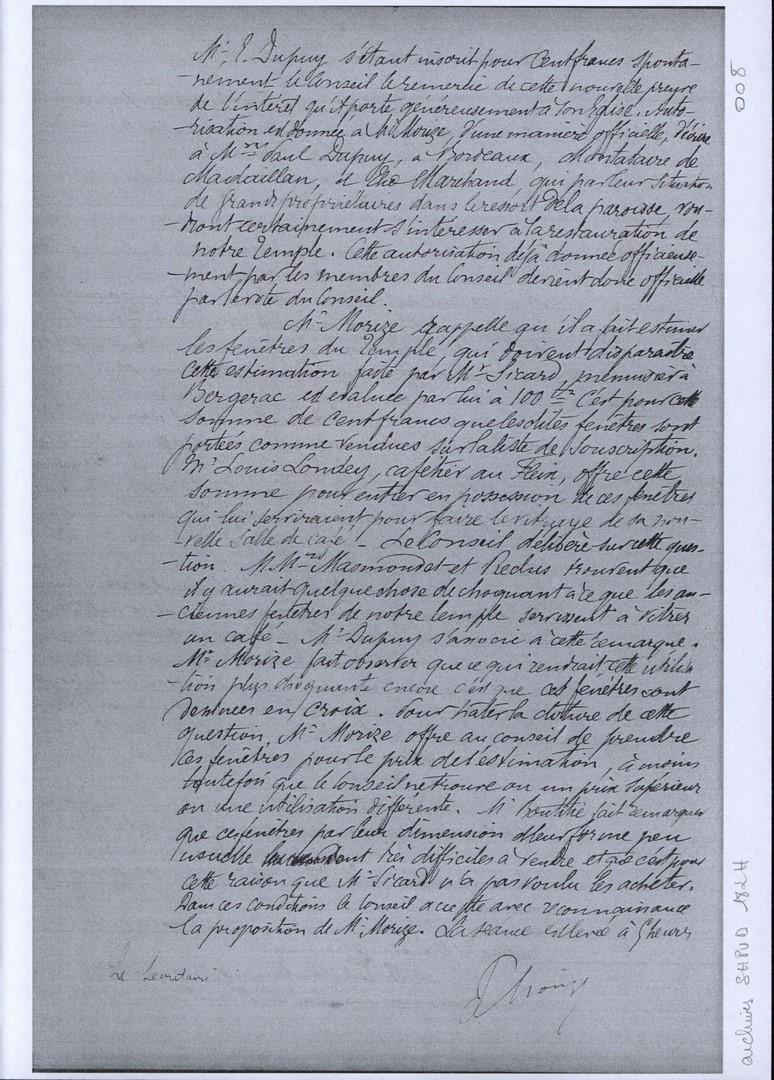 Mr. E. Dupuy s'étant inscrit pour cent francs sponta-
-nément le Conseil le remercie de cette nouvelle preuve
de l'intérêt qu'il porte généreusement à son Eglise. Auto-
-risation est donnée à Mr. Morize, d'une manière officielle, d'écrire
à Mme Paul Dupuy, à Bordeaux, de
Madaillan, et Marchand, qui par leur situation
de grands propriétaires dans le ressort de la paroisse, vou-
-dront certainement s'intéresser à la restauration de
notre Temple. Cette autorisation déjà donnée officieuse-
-ment par les membres du Conseil devient donc officielle
par le vote du Conseil.
Mr Morize rappelle qu'il a fait estimer
les fenêtres du Temple, qui doivent disparaître
cette estimation faite par Mr Sicard, menuisier à
Bergerac est évaluée par lui à 100 frs C'est pour cette
somme de cent francs que les dites fenêtres sont
portées comme vendues sur la liste de souscription.
Mr Louis Londey, cafetier au Fleix, offre cette
somme pour entrer en possession de ces fenêtres
qui lui serviraient pour faire le vitrage de sa nou-
-velle salle de café. - Le Conseil délibère sur cette ques-
-tion. M.Mrs Masmondet et Reclus trouvent que
il y aurait quelque chose de choquant à ce que les an-
-ciennes fenêtres de notre temple servissent à vitrer
un café - Mr Dupuy s'associe à cette remarque.
Mr Morize fait observer que ce qui rendrait cette utilisa
-tion plus choquante encore c'est que ces fenêtres sont
dessinées en croix. Pour hâter la clôture de cette
question, Mr Morize offre au conseil de prendre
ces fenêtres pour le prix de l'estimation, à moins
toutefois que le Conseil ne trouve ou un prix supérieur
ou une utilisation différente. Mr Boutitié fait remarquer
que ces fenêtres par leur dimension et leur forme peu
usuelle sont très difficiles à vendre et que c'est pour
cette raison que Mr Sicard n'a pas voulu les acheter.
Dans ces conditions le Conseil accepte avec reconnaissance
la proposition de Mr Morize. La séance est levée à 9 heures
Le Secrétaire
008
archives SHPVD 182H